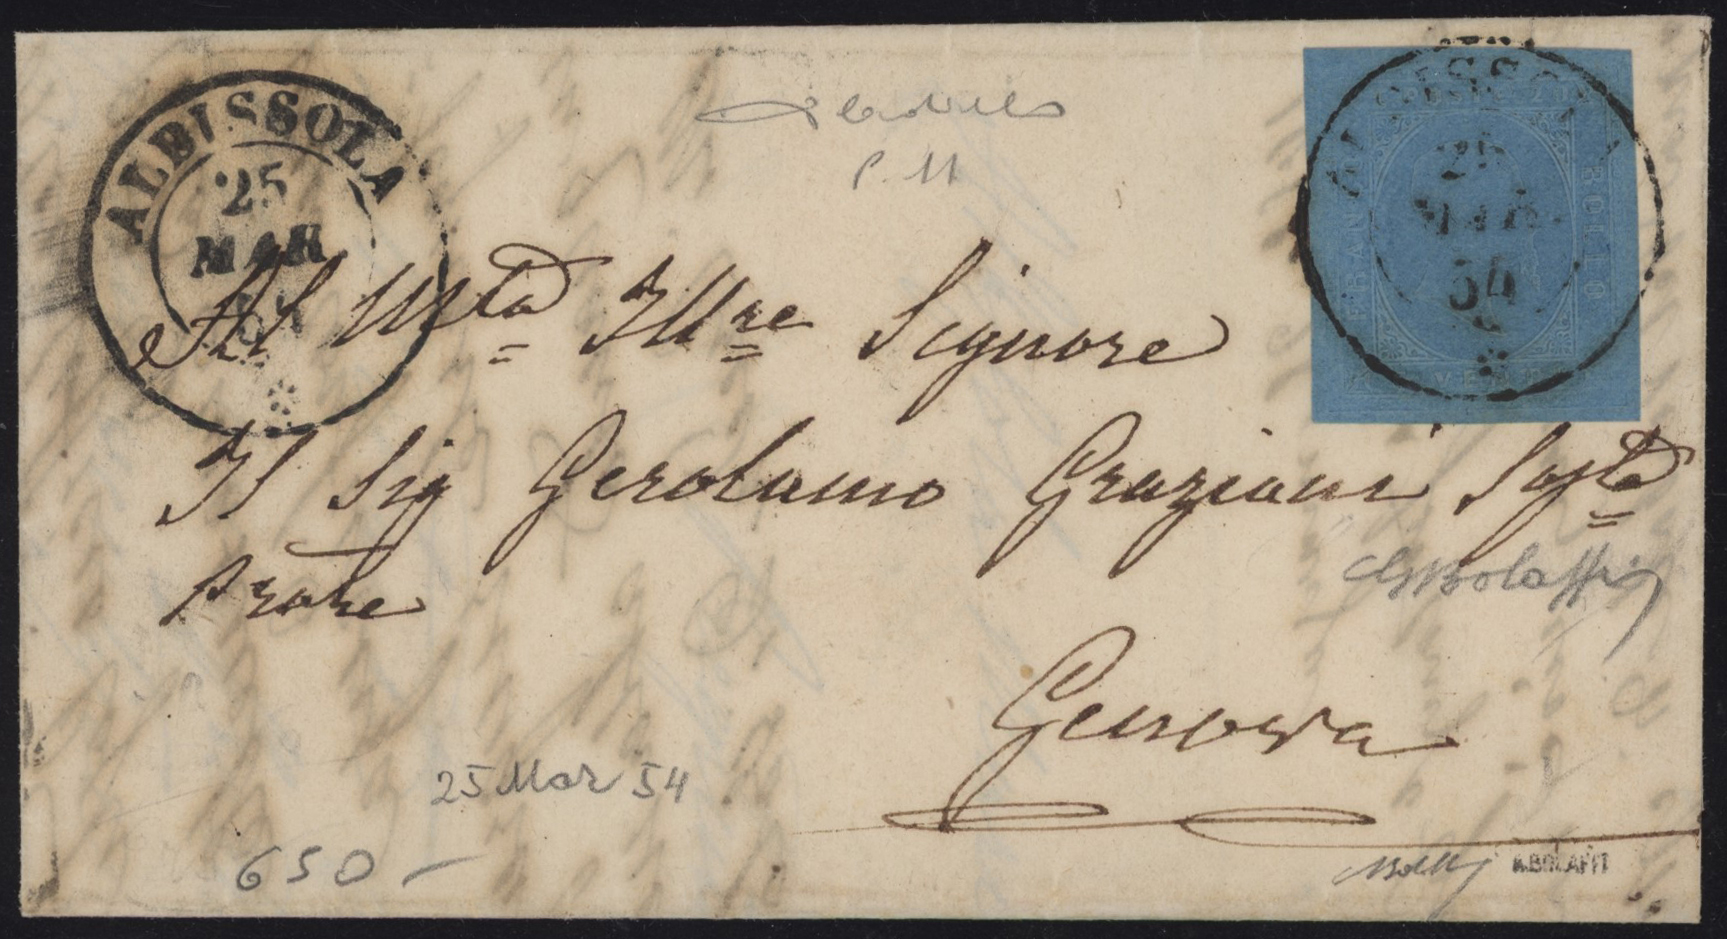 ALBISSOLA
25
MAR
ALBISSOLA
25
MAR
54
FRANCO BOLLO
P. 11
Al Mto Illre Signore
Il Sig Gerolamo Graziani Sosto
Prore
GBolaffi
Genova
25 Mar 54
650 -
A.BOLAFFI